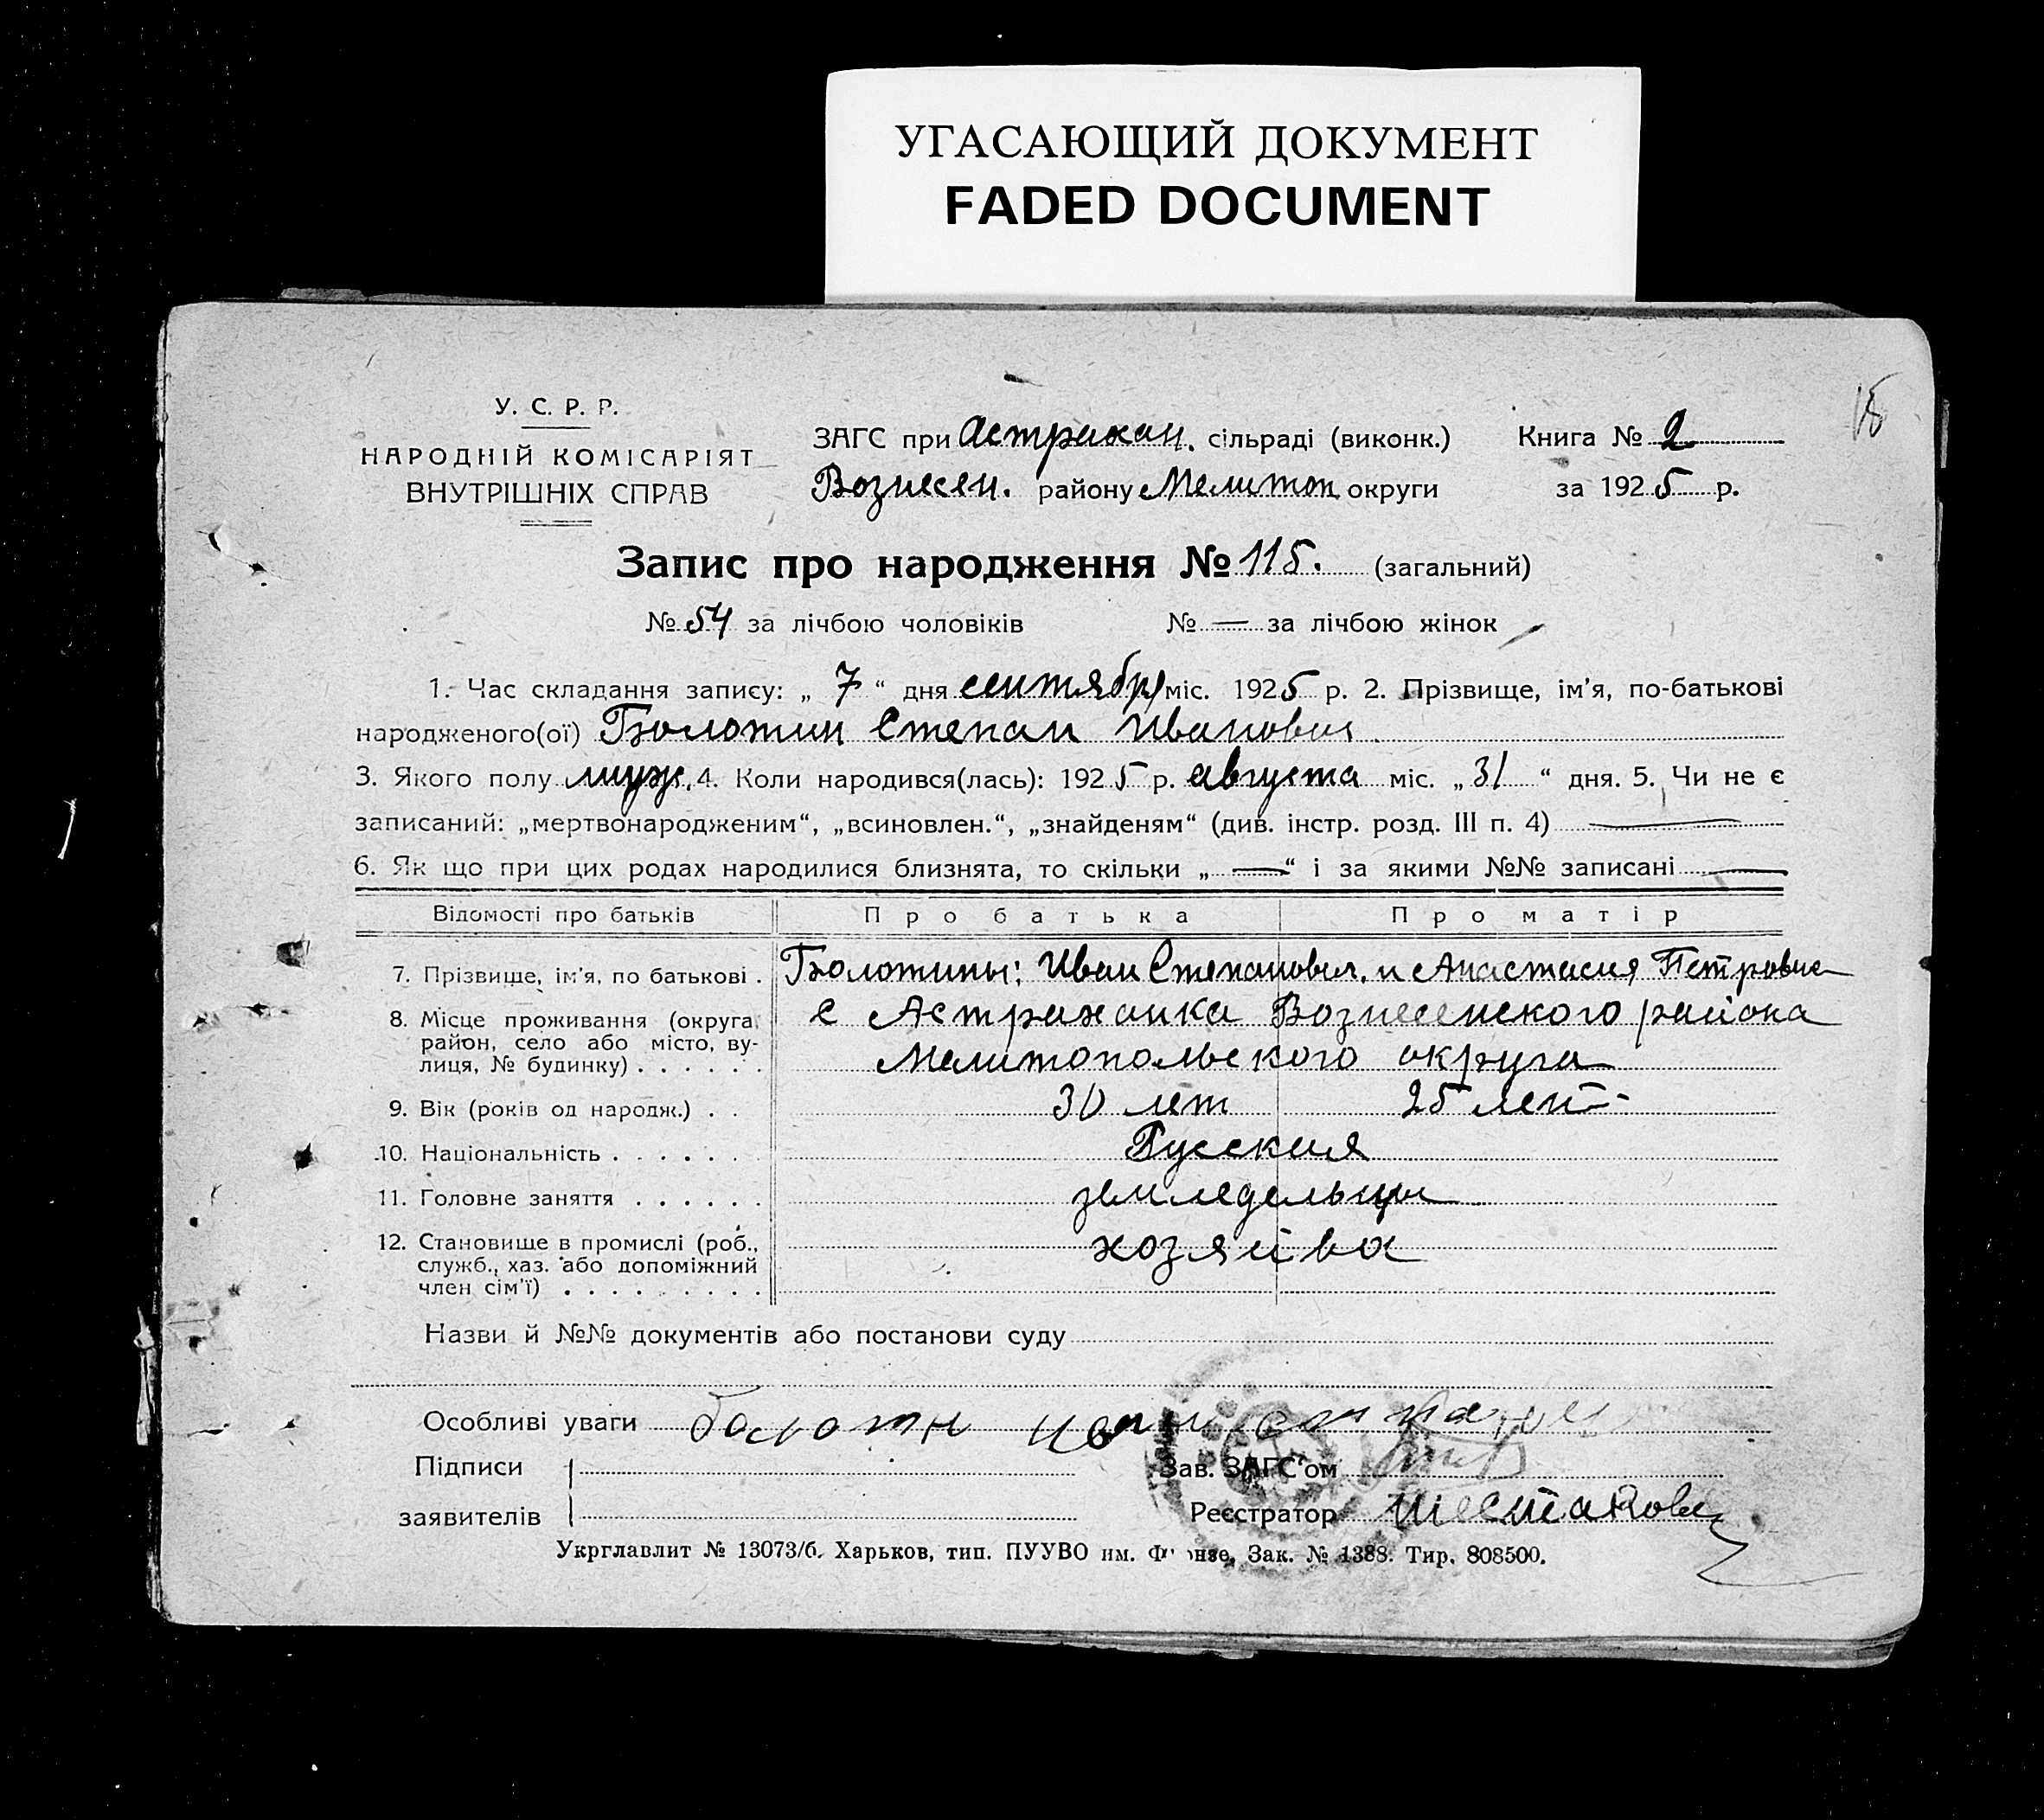 УГАСАЮЩИЙ ДОКУМЕНТ
FADED DOCUMENT
15
У. С. Р. Р.
НАРОДНІЙ КОМІСАРІЯТ
ВНУТРІШНІХ СПРАВ
ЗАГС при Астрахан. сільраді (виконк.)
Вознесен. району Мелитоп округи
Книга № 2
за 1925 р.
Запис про народження № 115. (загальний)
№ 54 за лічбою чоловіків № — за лічбою жінок
1. Час складання запису: „ 7 “ дня сентября міс. 1925 р. 2. Прізвище, ім’я, по-батькові
народженого(ої) Болотин Степан Иванович
3. Якого полу муж. 4. Коли народився(лась): 1925 р. августа міс. „ 31 “ дня. 5. Чи не є
записаний: „мертвонародженим“, „всиновлен.“, „знайденям“ (див. інстр. розд. III п. 4) —
6. Як що при цих родах народилися близнята, то скільки „ — “ і за якими №№ записані —
Відомості про батьків Про батька Про матір
7. Прізвище, ім’я, по батькові . Болотины: Иван Степанович. и Анастасия Петровна
8. Місце проживання (округа, район, село або місто, вулиця, № будинку) . . . . . . с Астраханка Вознесенского района
Мелитопольского округа
9. Вік (років од народж.) . . 30 лет 25 лет
10. Національність . . . . . . . Русския
11. Головне заняття . . . . . . земледельцы
12. Становище в промислі (роб., служб., хаз. або допоміжний член сім’ї) . . . . . . . . . хозяйва
Назви й №№ документів або постанови суду
Особливі уваги болотн
Підписи
заявителів
Зав. ЗАГС’ом
Реєстратор Шестаков
Укрглавлит № 13073/б. Харьков, тип. ПУУВО им. Фрунзе. Зак. № 1388. Тир. 808500.